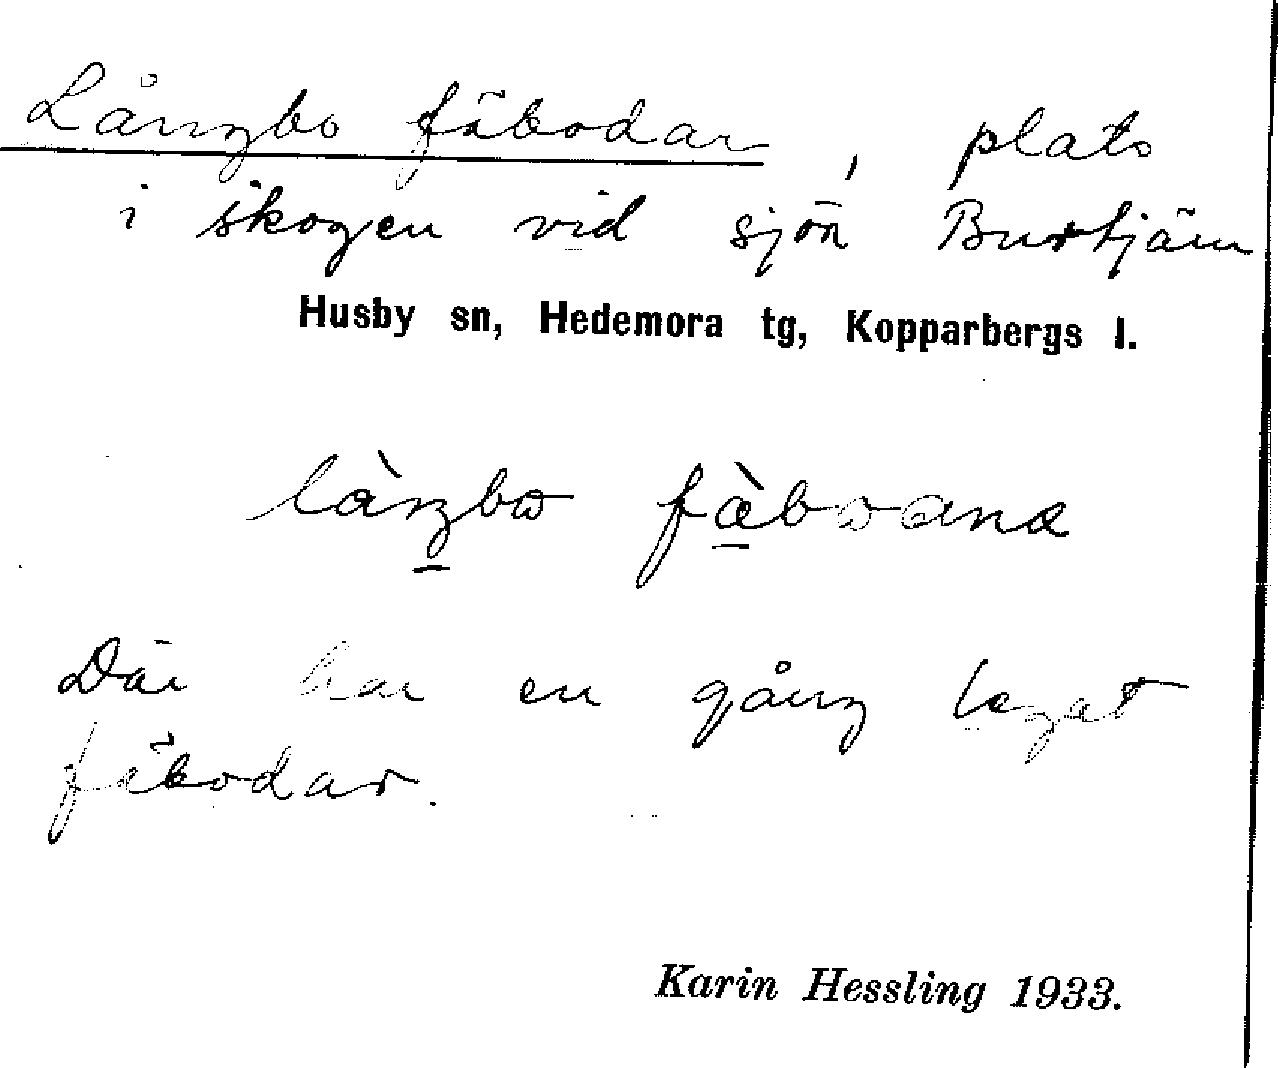 Långbo fäbodar, plats
i skogen vid sjön Burtjärn
Husby sn, Hedemora tg, Kopparbergs l.
fäboana
Där har en gång legat
fäbodar.
Karin Hessling 1933.